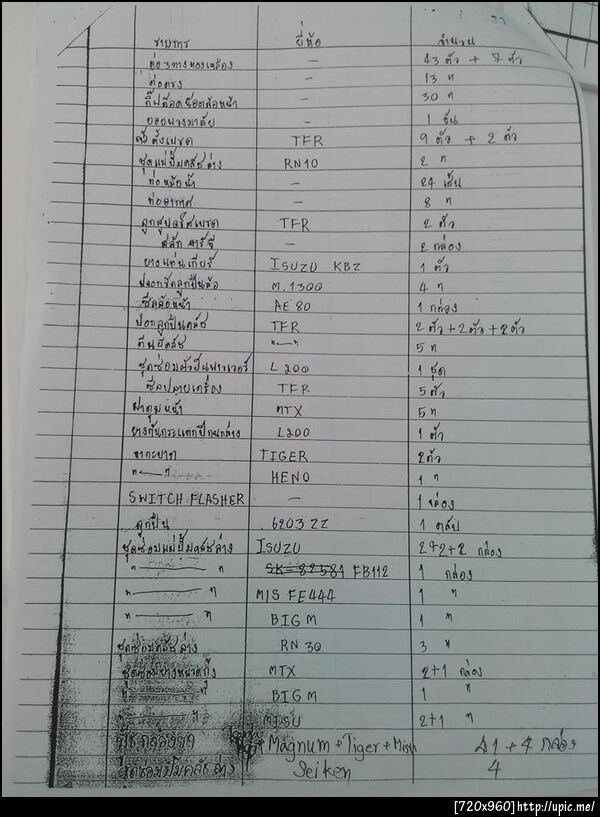 27
รายการ ยี่ห้อ จำนวน
ต่อ 3 ทางทองเหลือง - 43 ตัว + 7 ตัว
ต่อตรง - 13 "
กิ๊ฟล๊อคน๊อตล้อหน้า - 30 "
ยอยพวงมาลัย - 1 อัน
ตั้งเบรค TFR 9 ตัว + 2 ตัว
ชุดแม่ปั๊มคลัชล่าง RN10 2 "
ท่อหม้อน้ำ - 24 เส้น
ท่ออากาศ - 8 "
ลูกสูบเบรค TFR 2 ตัว
สลัก - 2 กล่อง
ยางแท่นเกียร์ ISUZU KBZ 1 ตัว
ลูกปืนล้อ M.1300 4 "
ซีลล้อหน้า AE 80 1 กล่อง
ปลอกลูกปืนคลัช TFR 2 ตัว + 2 ตัว + 2 ตัว
ตีนผีคลัช "—" 5 "
ชุดซ่อมหัวปั๊มพาวเวอร์ L200 1 ชุด
ซีลปลายเครื่อง TFR 5 ตัว
ฝาดุมหน้า MTX 5 "
ยางกันกระแทกปีกนกล่าง L200 1 ตัว
TIGER 2 ตัว
"—" HENO 1 "
SWITCH FLASHER - 1 กล่อง
ลูกปืน 6203 ZZ 1 ตลับ
ชุดซ่อมแม่ปั๊มคลัชล่าง ISUZU 2+2+2 กล่อง
"—" SK-82581 FB112 1 กล่อง
"—" MIS FE444 1 "
"—" BIG M 1 "
ชุดซ่อมคลัชล่าง RN 30 3 "
MTX 2+1 กล่อง
"—" BIG M 1 "
"—" MISU 2+1 "
+ Magnum + Tiger + Misu 41 + 4 กล่อง
ชุดซ่อมปั๊มคลัชล่าง Seiken 4
[720x960] http://upic.me/